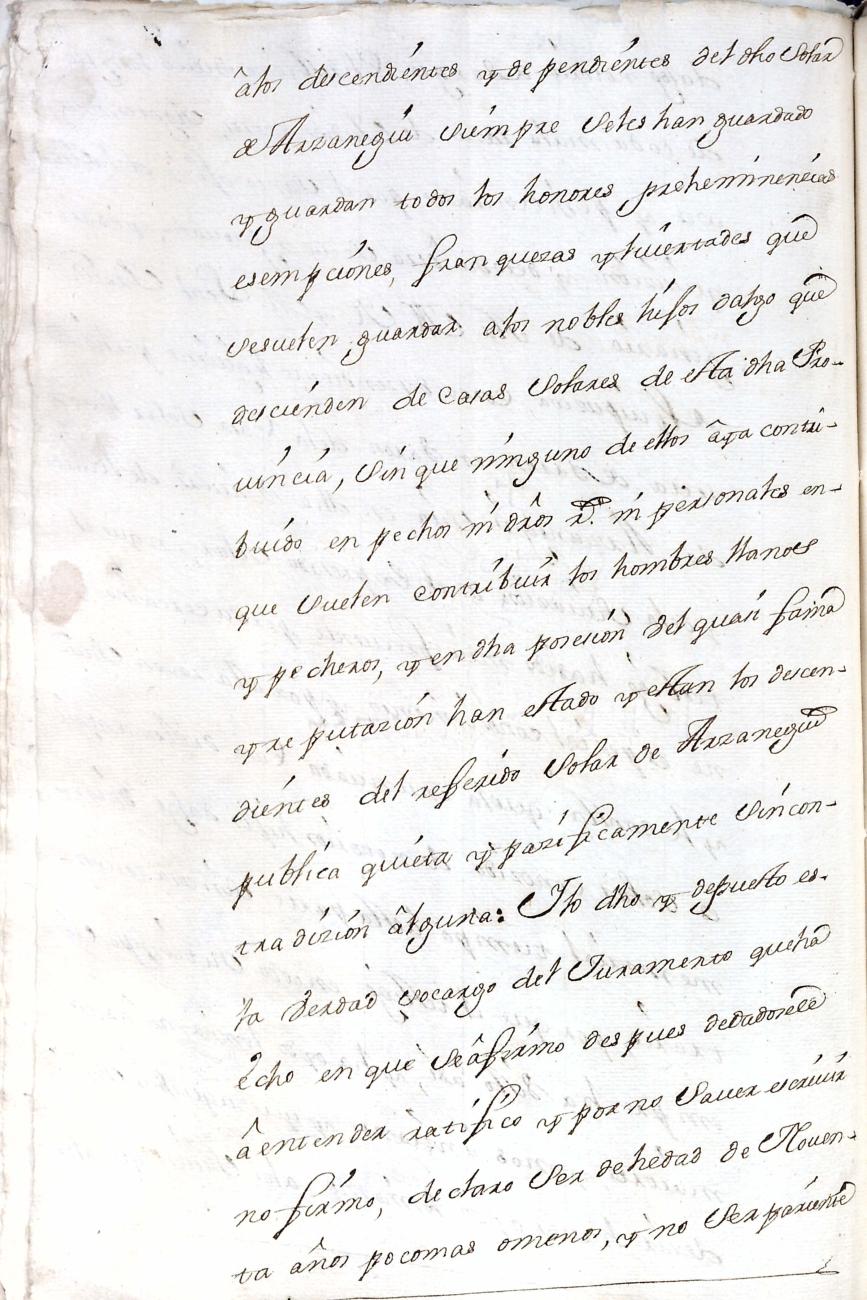 âlos descendientes y dependientes del dho Solar
de Arzanegui siempre seles han guardado
y guardan todos los honores, preheminencias
esempciones, franquezas y livertades que
sesuelen guardar alos nobles hijos dalgo que
descienden de Casas Solares de esta dha Pro-
vincia, sin que ninguno de ellos âya contri-
buido en pechos ni dros Rs. ni personales en-
que suelen contribuir los hombres llanos
y pecheros, y en dha posesion del quasi fama
y reputazion han estado y estan los descen-
dientes del refferido Solar de Arzanegui
publica quieta y pazificamente sin con-
tradizion âlguna: Ylo dho y depuesto es.
la verdad socargo del Juramento queha
êcho en que seâfirmo despues dedadosele
â entender ratifico y por no saver escrivir
no firmo, declaro ser dehedad de Noven-
ta años pocomas omenos, y no ser pariente